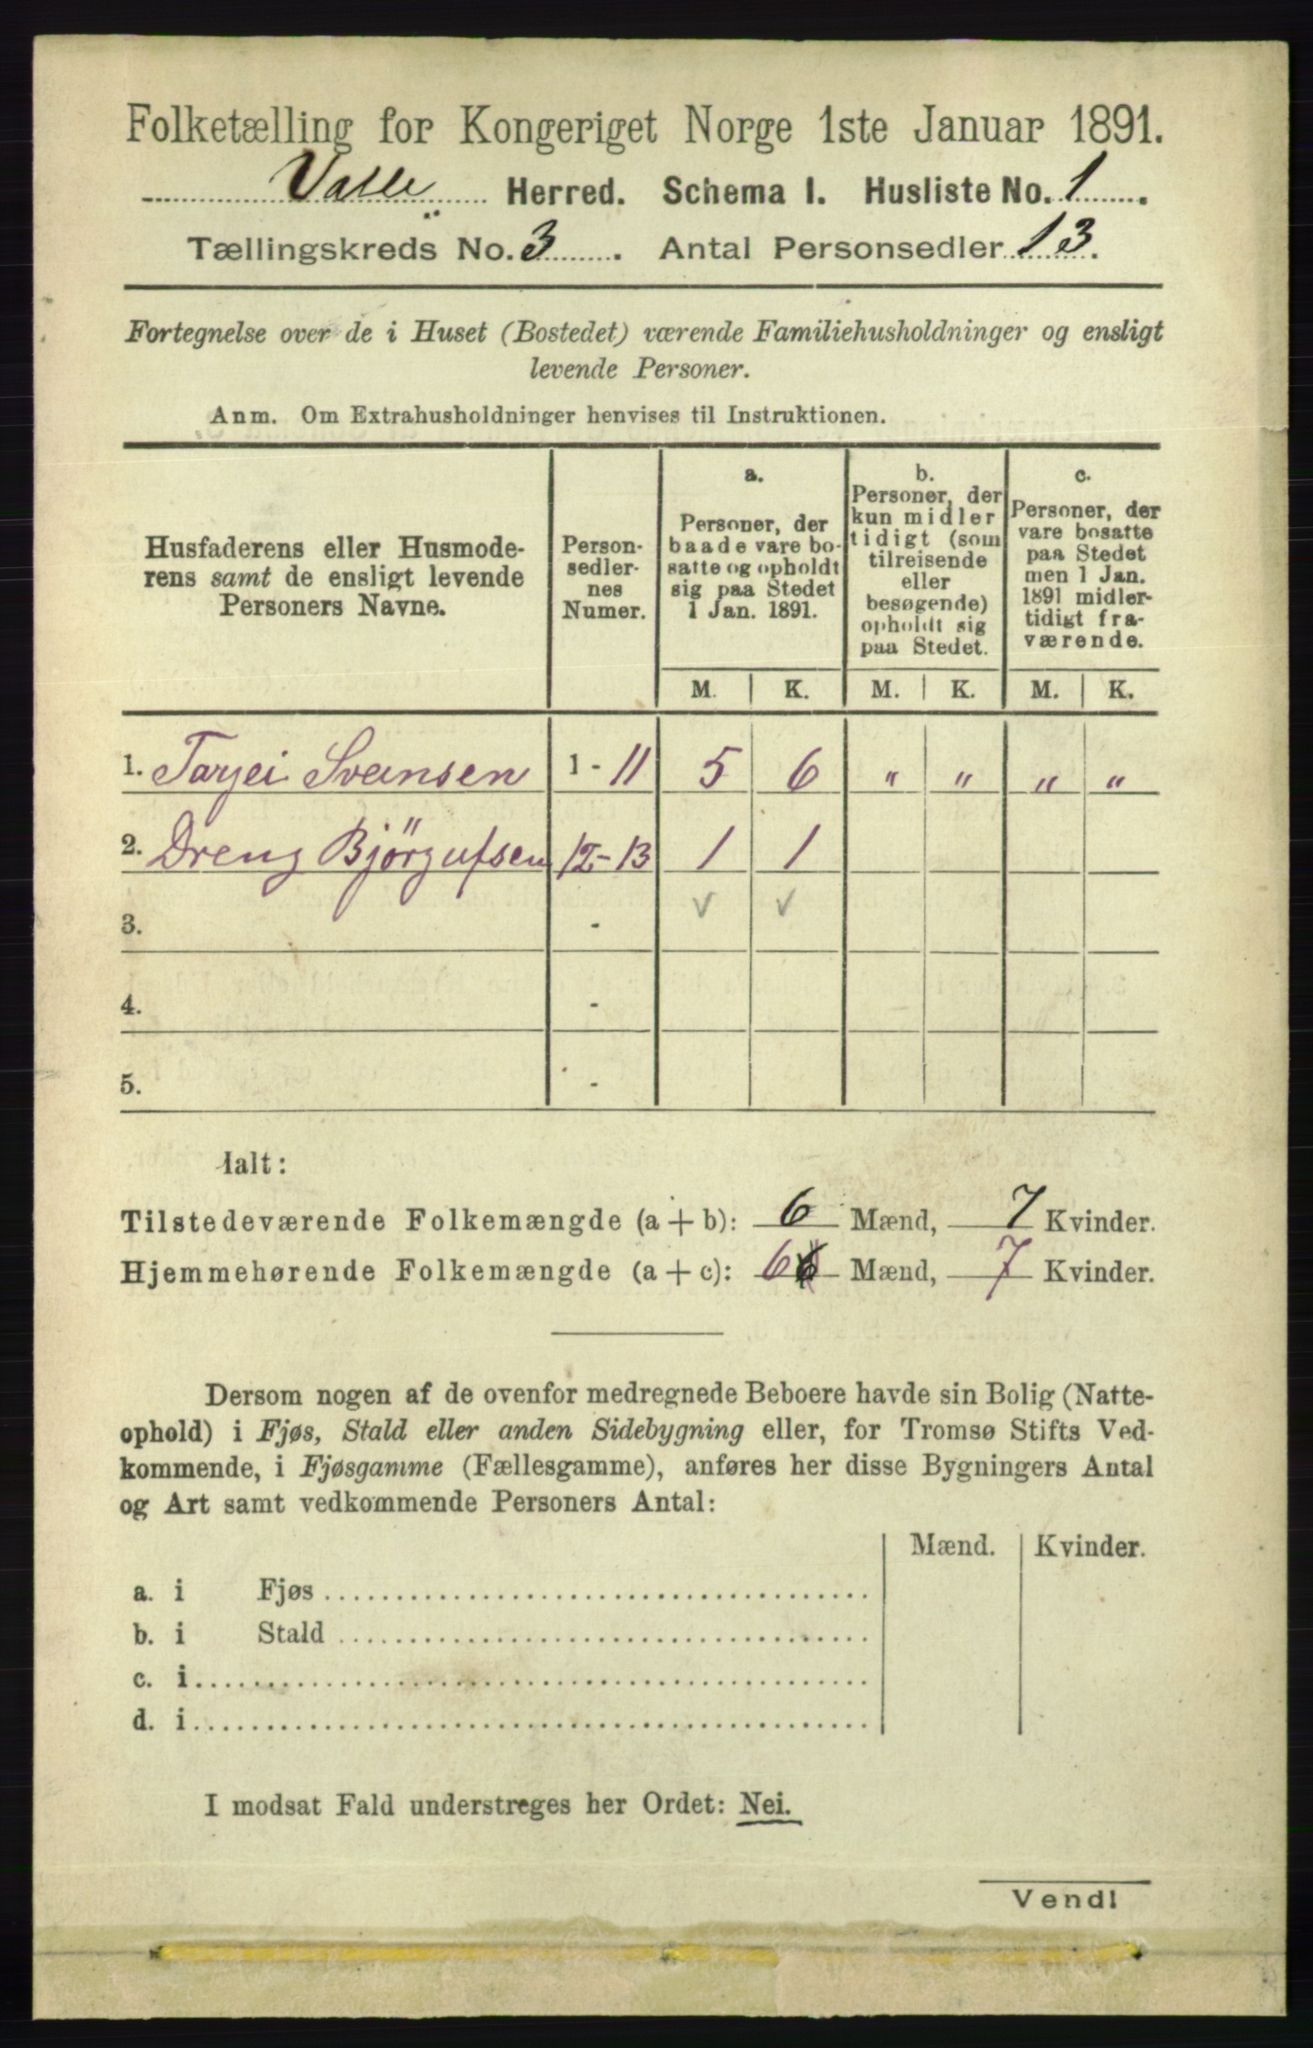 Folketælling for Kongeriget Norge 1ste Januar 1891.
Valle Herred. Schema I. Husliste No. 1.
Tællingskreds No. 3. Antal Personsedler 13.
Fortegnelse over de i Huset (Bostedet) værende Familiehusholdninger og ensligt
levende Personer.
Anm. Om Extrahusholdninger henvises til Instruktionen.
Husfaderens eller Husmode-
rens samt de ensligt levende
Personers Navne.
Person-
sedler-
nes
Numer.
a.
Personer, der
baade vare bo-
satte og opholdt
sig paa Stedet
1 Jan. 1891.
b.
Personer, der
kun midler
tidigt (som
tilreisende
eller
besøgende)
opholdt sig
paa Stedet.
c.
Personer, der
vare bosatte
paa Stedet
men 1 Jan.
1891 midler-
tidigt fra-
værende.
M. K. M. K. M. K.
1. Tarjei Sveinsen 1 - 11 5 6 " " " "
2. Dreng Bjørgufsen 12 - 13 1 1
3. - ✓ ✓
4. -
5. -
Ialt:
Tilstedeværende Folkemængde (a + b): 6 Mænd, 7 Kvinder.
Hjemmehørende Folkemængde (a + c): 6 6 Mænd, 7 Kvinder.
Dersom nogen af de ovenfor medregnede Beboere havde sin Bolig (Natte-
ophold) i Fjøs, Stald eller anden Sidebygning eller, for Tromsø Stifts Ved-
kommende, i Fjøsgamme (Fællesgamme), anføres her disse Bygningers Antal
og Art samt vedkommende Personers Antal:
Mænd. Kvinder.
a. i Fjøs
b. i Stald
c. i
d. i
I modsat Fald understreges her Ordet: Nei.
Vendl